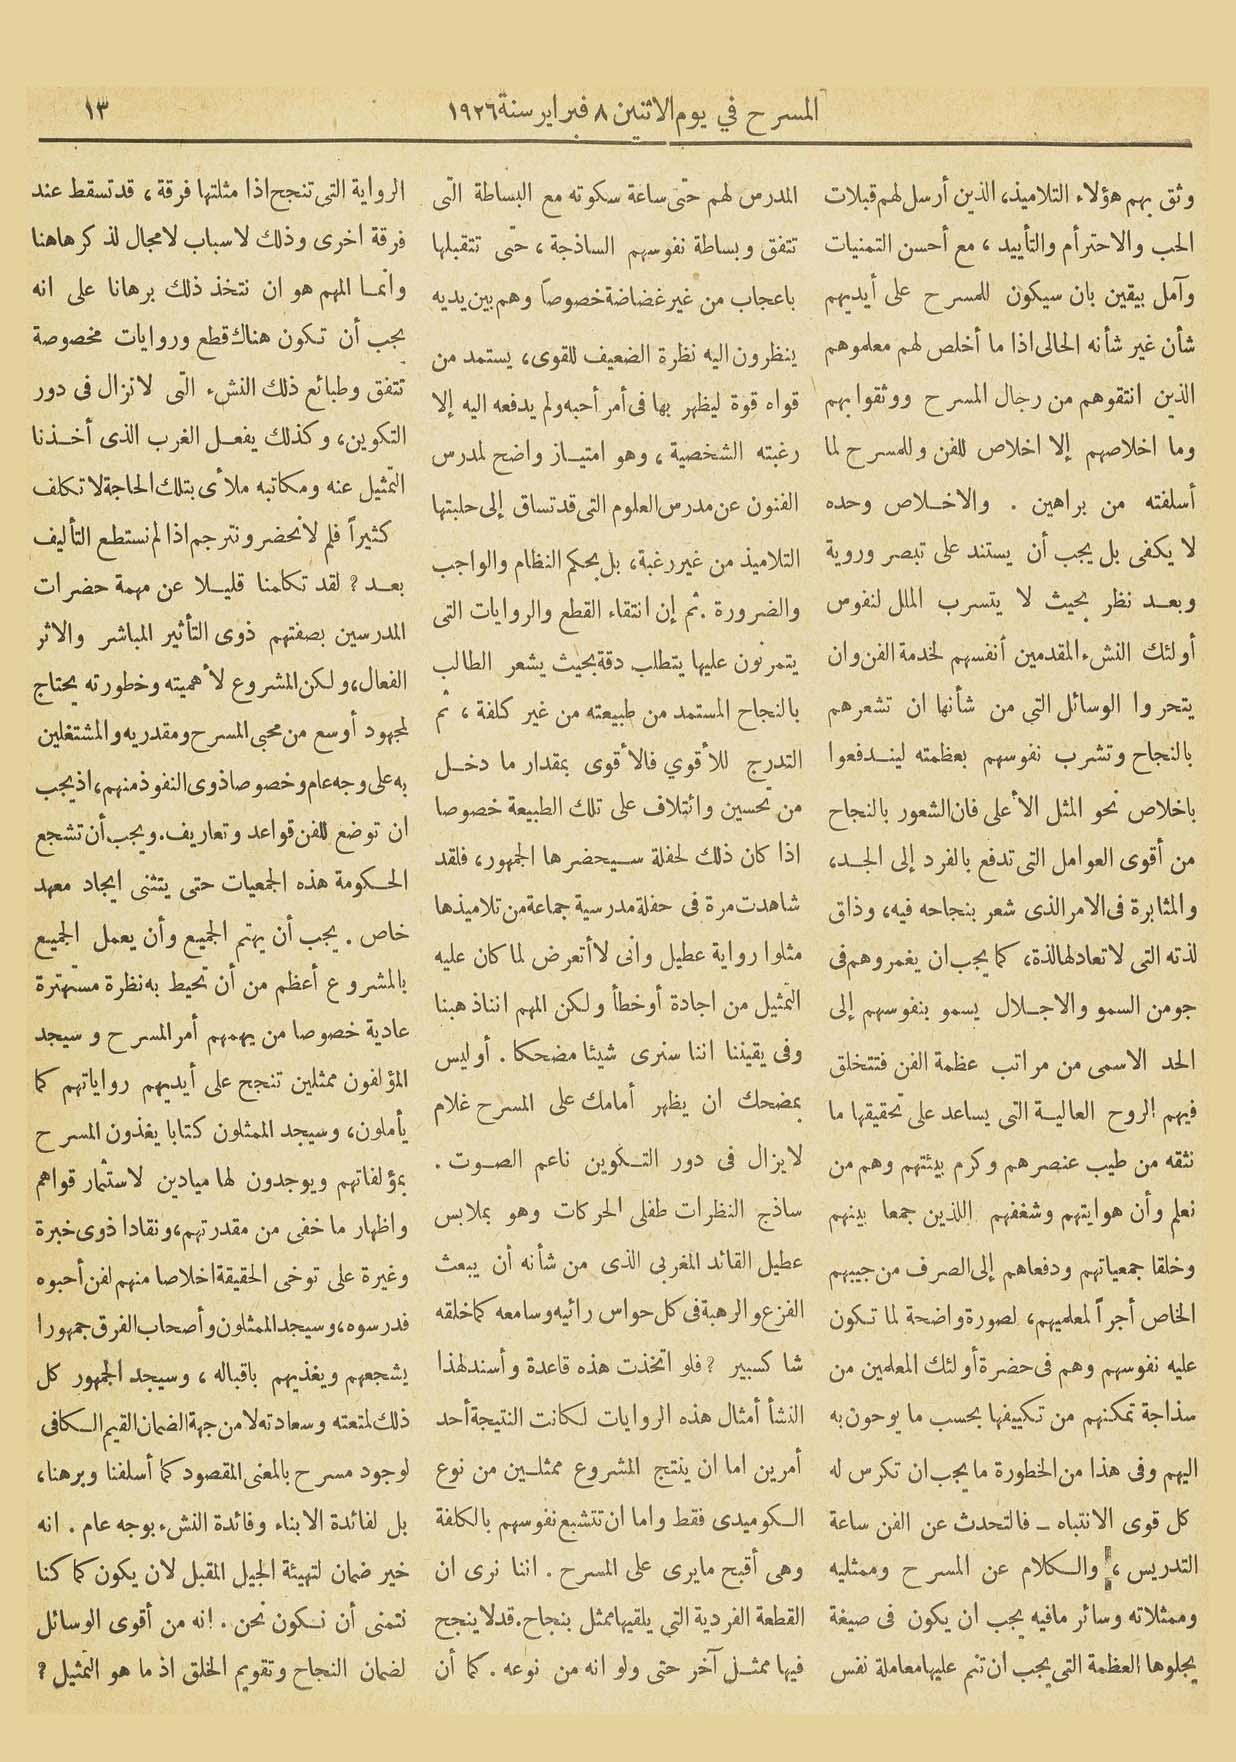 المسرح في يوم الاثنين ٨ فبراير سنة ١٩٢٦
١٣
وثق بهم هؤلاء التلاميذ، الذين أرسل لهم قبلات
الحب والاحترأم والتأييد، مع أحسن التمنيات
وآمل بيقين بان سيكون للمسرح على أيديهم
شأن غير شأنه الحالى اذا ما أخلص لهم معلموهم
الذين انتقوهم من رجال المسرح ووثقوا بهم
وما اخلاصهم إلا اخلاص للفن وللمسرح لما
أسلفته من براهين . والاخلاص وحده
لا يكفى بل يجب أن يستند على تبصر وروية
وبعد نظر بحيث لا يتسرب الملل لنفوس
أولئك النشء المقدمين أنفسهم لخدمة الفن وان
يتحروا الوسائل التي من شأنها ان تشعرهم
بالنجاح وتشرب نفوسهم بعظمته ليندفعوا
باخلاص نحو المثل الأعلى فان الشعور بالنجاح
من أقوى العوامل التى تدفع بالفرد إلى الجد،
والمثابرة فى الامر الذى شعر بنجاحه فيه، وذاق
لذته التى لا تعادلها لذة، كما يجب ان يغمروهم فى
جو من السمو والاجلال يسمو بنفوسهم إلى
الحد الاسمى من مراتب عظمة الفن فتتخلق
فيهم الروح العالية التى يساعد على تحقيقها ما
نثقه من طيب عنصرهم وكرم بيئتهم وهم من
نعلم وأن هوايتهم وشغفهم اللذين جمعا بينهم
وخلقا جمعياتهم ودفعاهم إلى الصرف من جيبهم
الخاص أجراً لمعلميهم، لصورة واضحة لما تكون
عليه نفوسهم وهم فى حضرة أولئك المعلمين من
سذاجة تمكنهم من تكييفها بحسب ما يوحون به
اليهم وفى هذا من الخطورة ما يجب ان تكرس له
كل قوى الانتباه ــ فالتحدث عن الفن ساعة
التدريس، والكلام عن المسرح وممثليه
وممثلاته وسائر مافيه يجب ان يكون فى صيغة
يجلوها العظمة التى يجب ان تنم عليها معاملة نفس
المدرس لهم حتى ساعة سكوته مع البساطة التى
تتفق وبساطة نفوسهم الساذجة، حتى تتقبلها
باعجاب من غير غضاضة خصوصاً وهم بين يديه
ينظرون اليه نظرة الضعيف للقوى، يستمد من
قواه قوة ليظهر بها فى أمر أحبه ولم يدفعه اليه إلا
رغبته الشخصية، وهو امتياز واضح لمدرس
الفنون عن مدرس العلوم التى قد تساق إلى حلبتها
التلاميذ من غير رغبة، بل بحكم النظام والواجب
والضرورة . ثم إن انتقاء القطع والروايات التى
يتمرنون عليها يتطلب دقة بحيث يشعر الطالب
بالنجاح المستمد من طبيعته من غير كلفة، ثم
التدرج للأقوي فالأقوى بمقدار ما دخل
من تحسين وائتلاف على تلك الطبيعة خصوصا
اذا كان ذلك لحفلة سيحضرها الجمهور، فلقد
شاهدت مرة فى حفلة مدرسية جماعة من تلاميذها
مثلوا رواية عطيل وانى لا أتعرض لما كان عليه
التمثيل من اجادة أو خطأ ولكن المهم اننا ذهبنا
وفى يقيننا اننا سنرى شيئا مضحكا . أو ليس
بمضحك ان يظهر أمامك على المسرح غلام
لا يزال فى دور التكوين ناعم الصوت .
ساذج النظرات طفلى الحركات وهو بملابس
عطيل القائد المغربى الذى من شأنه أن يبعث
الفزع والرهبة فى كل حواس رائيه وسامعه كما خلقه
شاكسبير ؟ فلو اتخذت هذه قاعدة وأسند لهذا
النشأ أمثال هذه الروايات لكانت النتيجة أحد
أمرين اما ان ينتج المشروع ممثلين من نوع
الكوميدى فقط واما ان تتشبع نفوسهم بالكلفة
وهى أقبح مايرى على المسرح . اننا نرى ان
القطعة الفردية التي يلقيها ممثل بنجاح . قد لا ينجح
فيها ممثل آخر حتى ولو انه من نوعه . كما أن
الرواية التى تنجح اذا مثلتها فرقة، قد تسقط عند
فرقة اخرى وذلك لاسباب لا مجال لذكرها هنا
وانما المهم هو ان نتخذ ذلك برهانا على انه
يجب أن تكون هناك قطع وروايات مخصوصة
تتفق وطبائع ذلك النشء التى لا تزال فى دور
التكوين، وكذلك يفعل الغرب الذى أخذنا
التمثيل عنه ومكاتبه ملأى بتلك الحاجة لا تكلف
كثيراً فلم لا نحضر ونترجم اذا لم نستطع التأليف
بعد ؟ لقد تكلمنا قليلا عن مهمة حضرات
المدرسين بصفتهم ذوى التأثير المباشر والاثر
الفعال، ولكن المشروع لأهميته وخطورته يحتاج
لمجهود أوسع من محبى المسرح ومقدريه والمشتغلين
به على وجه عام وخصوصا ذوى النفوذ منهم، اذ يجب
ان توضع للفن قواعد وتعاريف . ويجب أن تشجع
الحكومة هذه الجمعيات حتى يتثنى ايجاد معهد
خاص . يجب أن يهتم الجميع وأن يعمل الجميع
بالمشروع أعظم من أن تحيط به نظرة مستهترة
عادية خصوصا من يهمهم أمر المسرح وسيجد
المؤلفون ممثلين تنجح على أيديهم رواياتهم كما
يأملون، وسيجد الممثلون كتابا يغذون المسرح
بمؤلفاتهم ويوجدون لها ميادين لاستثمار قواهم
واظهار ما خفى من مقدرتهم، ونقادا ذوى خبرة
وغيرة على توخى الحقيقة اخلاصا منهم لفن أحبوه
فدرسوه، وسيجد الممثلون وأصحاب الفرق جمهورا
يشجعهم ويغذيهم باقباله، وسيجد الجمهور كل
ذلك لمتعته وسعادته لا من جهة الضمان القيم الكافى
لوجود مسرح بالمعنى المقصود كما أسلفنا وبرهنا،
بل لفائدة الابناء وفائدة النشء بوجه عام . انه
خير ضمان لتهيئة الجيل المقبل لان يكون كما كنا
نتمنى أن نكون نحن . انه من أقوى الوسائل
لضمان النجاح وتقويم الخلق اذ ما هو التمثيل ؟